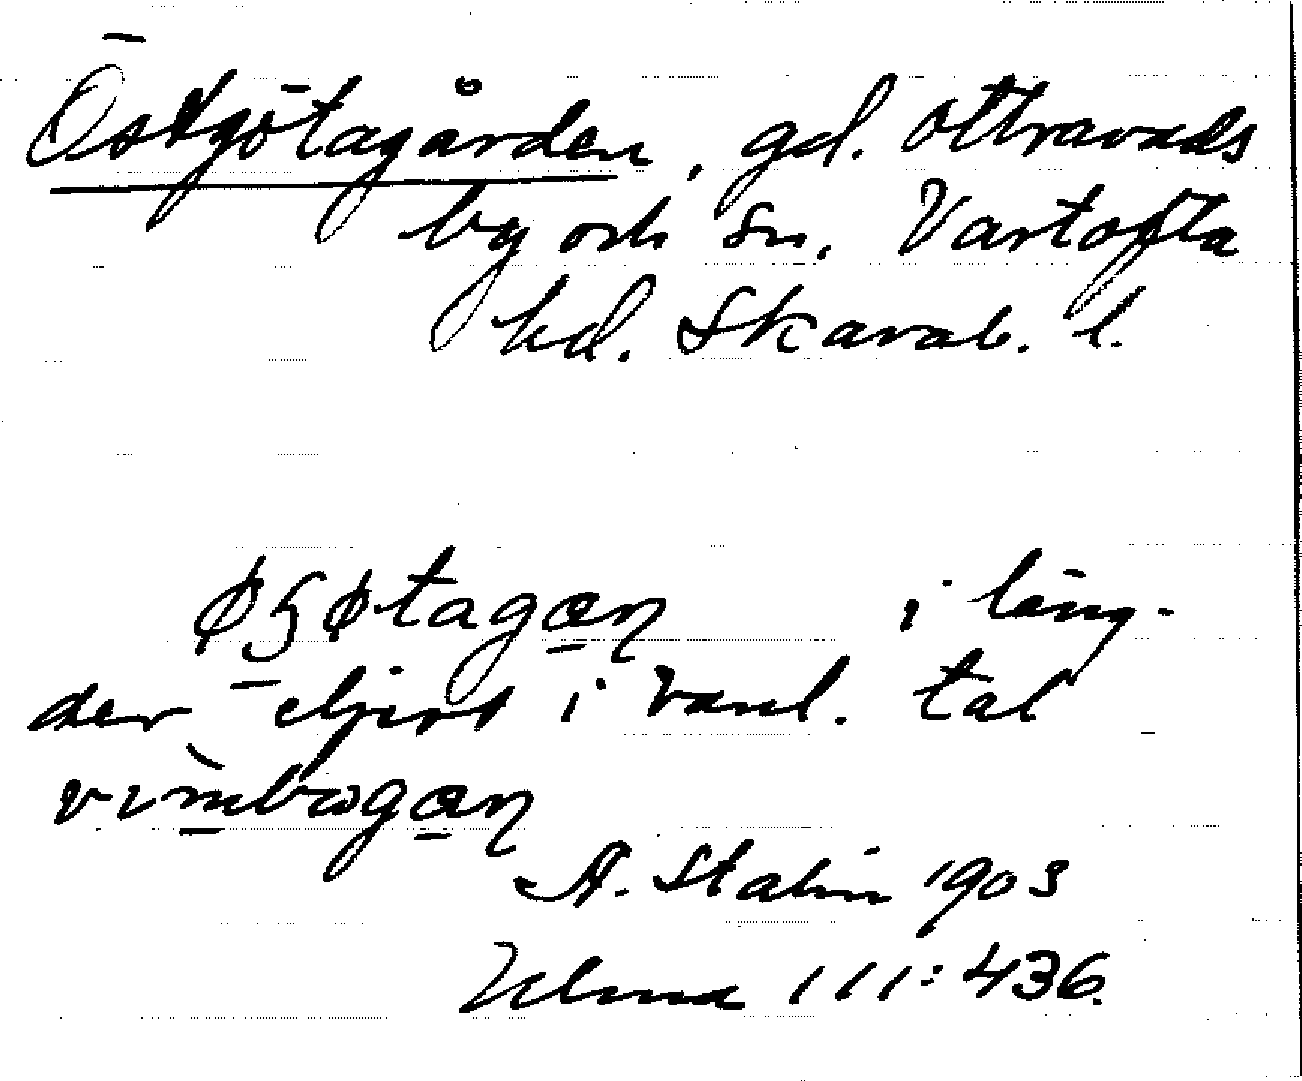 Östgötagården, gd. Ottravads
by och sn. Vartofta
hd. Skarab. l.
øʂøtagan i läng-
der eljest i vanl. tal
vimbogan
A. Stalin 1903
Ulma 111:436.